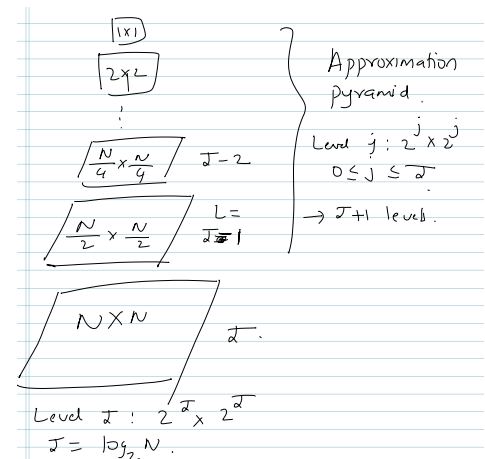 1x1
2x2
⋮
N/4 x N/4 J-2
N/2 x N/2 L= J-1
NXN J.
Level J : 2^J x 2^J
J = log₂ N.
Approximation
pyramid.
Level j : 2^j x 2^j
0 ≤ j ≤ J.
→ J+1 levels.